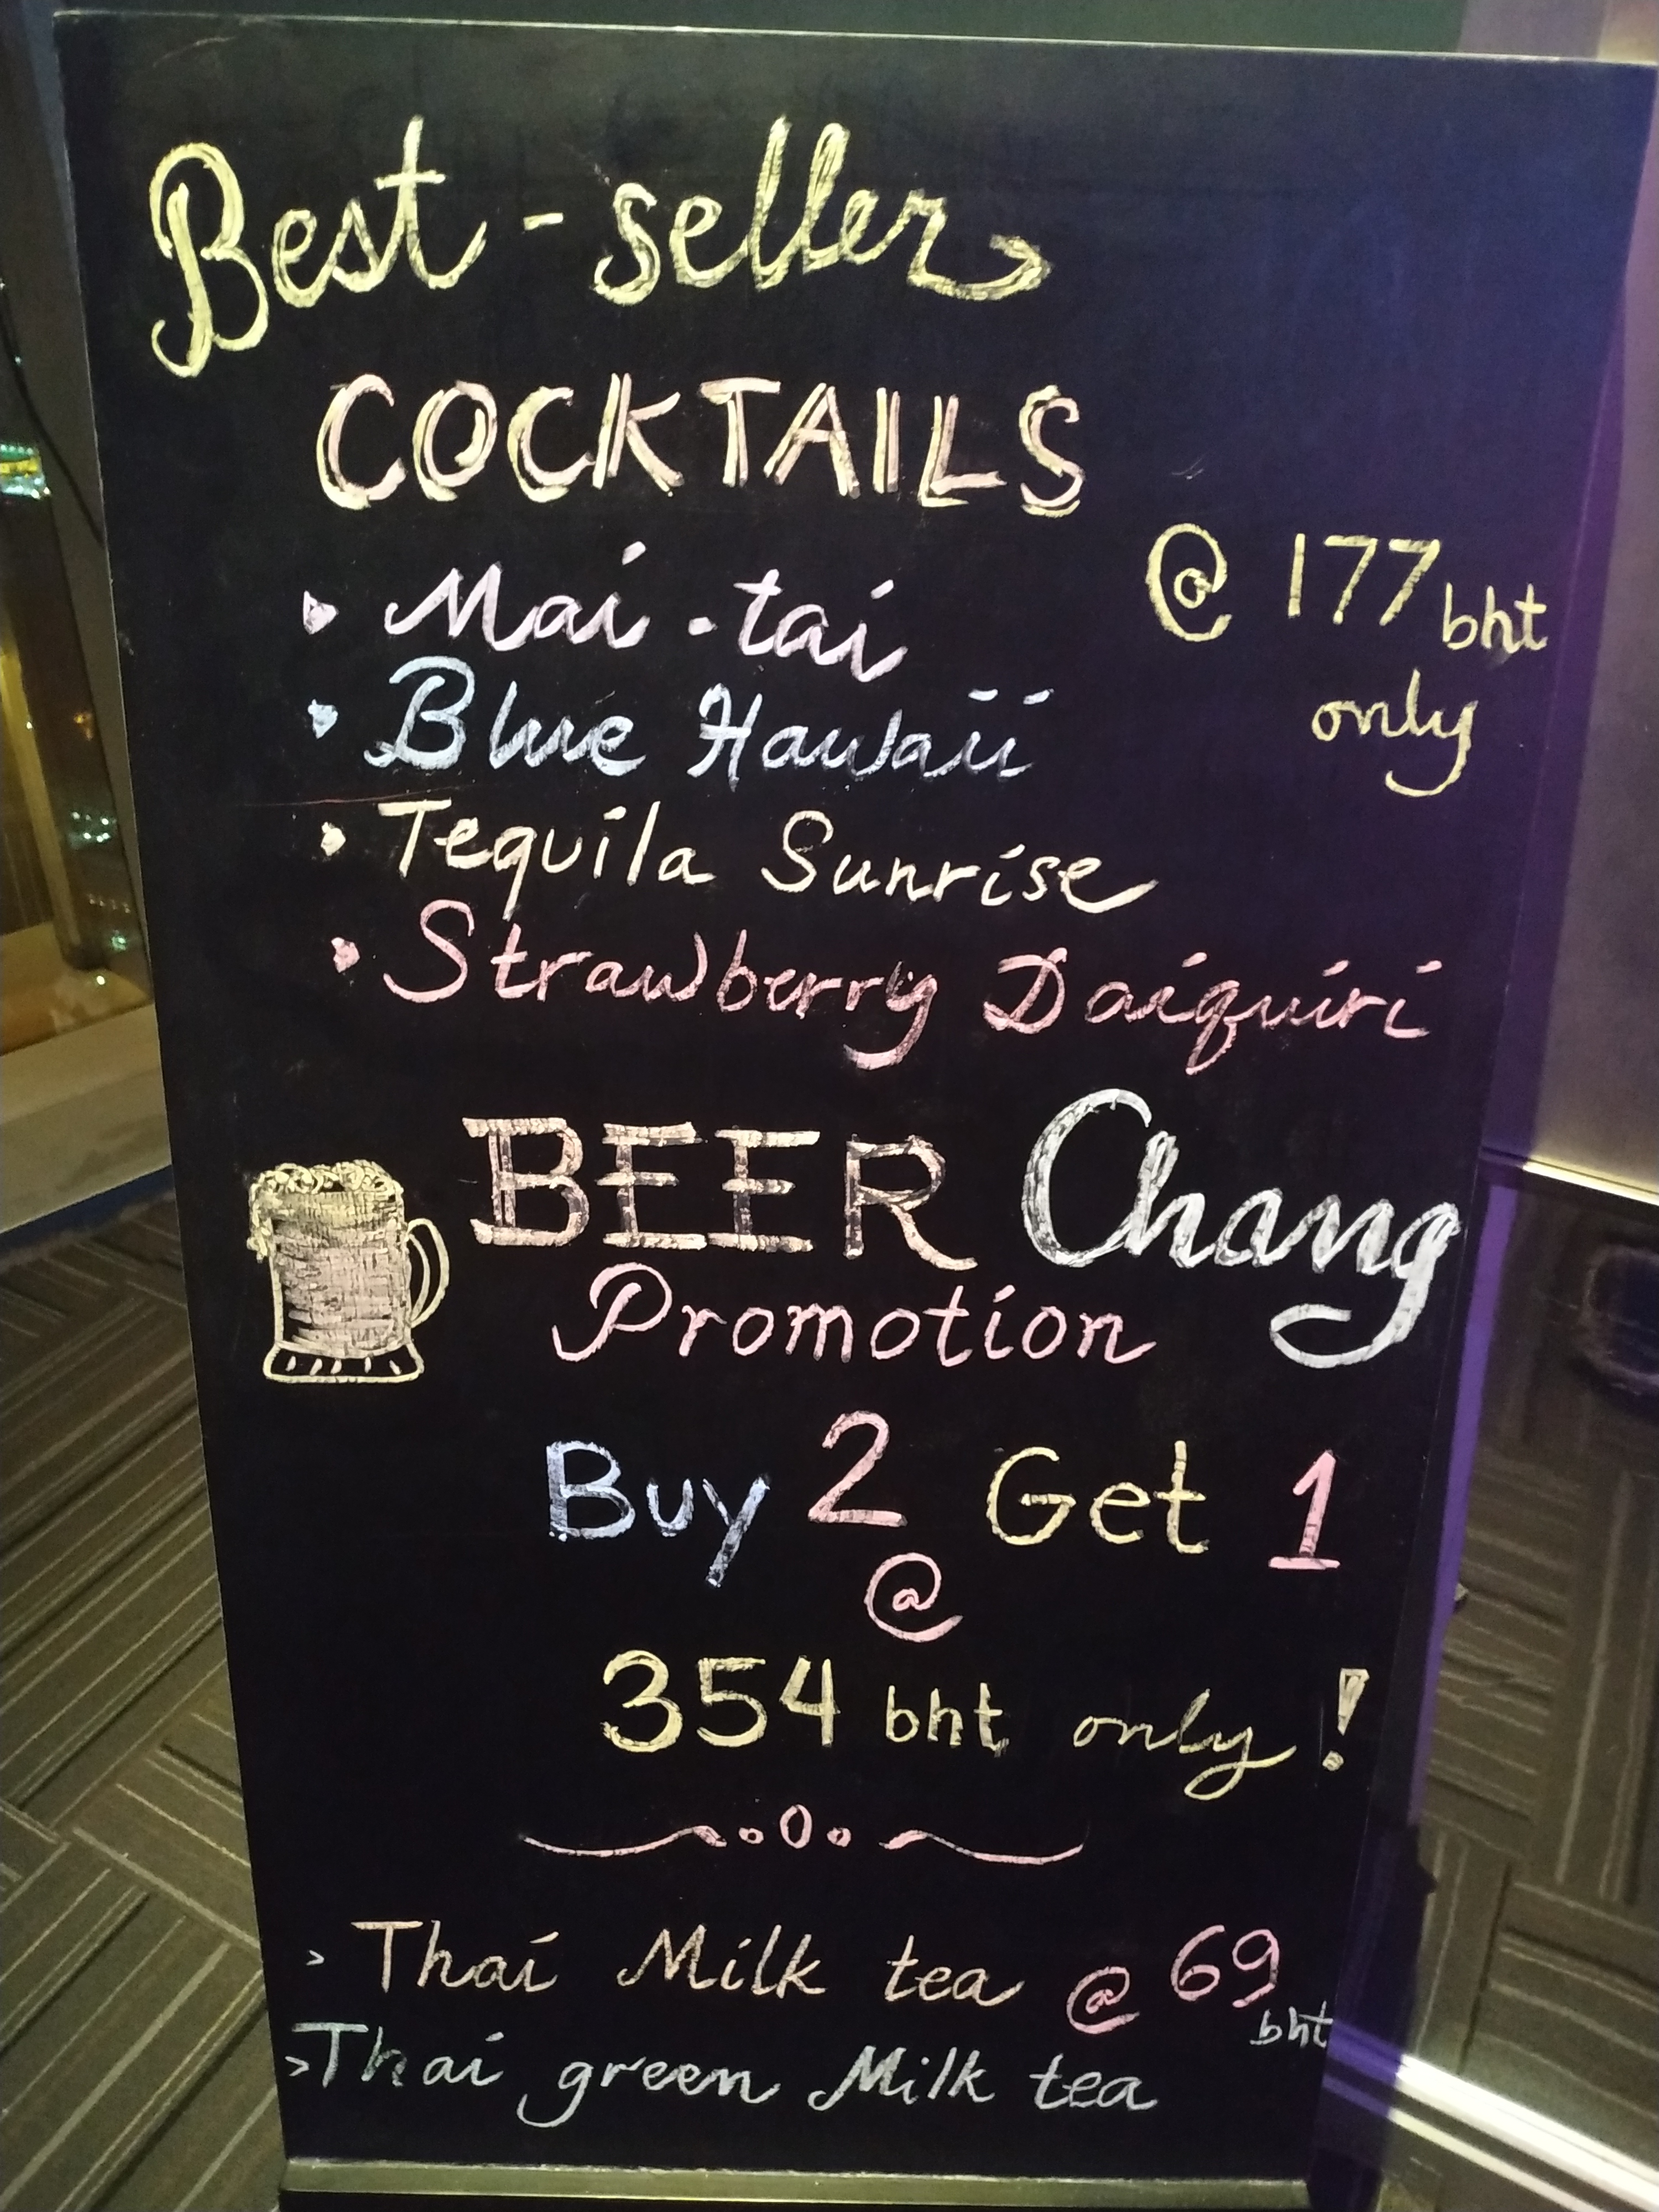 Best-seller
COCKTAILS
@ 177 bht
only
Mai-tai
Blue Hawaii
Tequila Sunrise
Strawberry Daiquiri
BEER Chang
Promotion
Buy 2 Get 1
@
354 bht only!
> Thai Milk tea @ 69 bht
> Thai green Milk tea